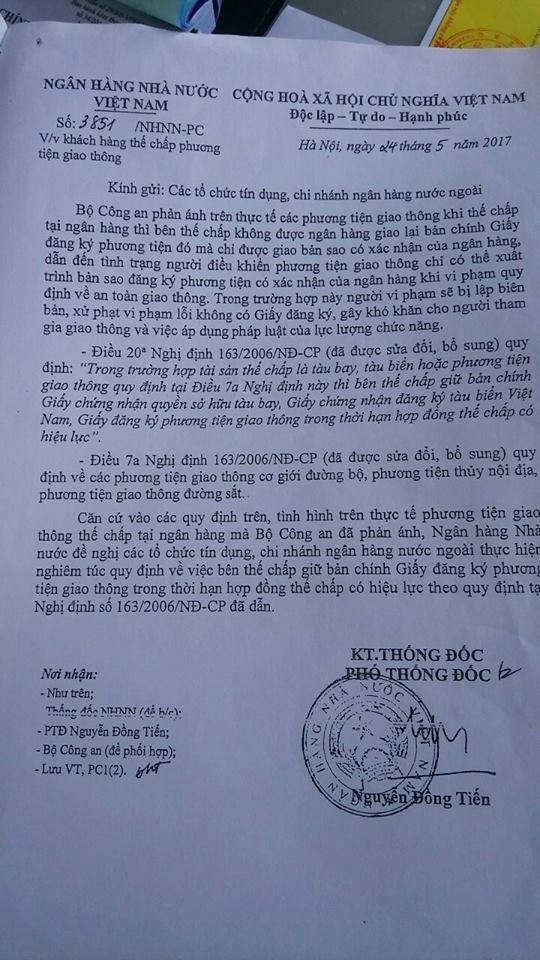 NGÂN HÀNG NHÀ NƯỚC
VIỆT NAM
CỘNG HOÀ XÃ HỘI CHỦ NGHĨA VIỆT NAM
Độc lập – Tự do – Hạnh phúc
Số: 3851 /NHNN-PC
V/v khách hàng thế chấp phương
tiện giao thông
Hà Nội, ngày 24 tháng 5 năm 2017
Kính gửi: Các tổ chức tín dụng, chi nhánh ngân hàng nước ngoài
Bộ Công an phản ánh trên thực tế các phương tiện giao thông khi thế chấp
tại ngân hàng thì bên thế chấp không được ngân hàng giao lại bản chính Giấy
đăng ký phương tiện đó mà chỉ được giao bản sao có xác nhận của ngân hàng,
dẫn đến tình trạng người điều khiển phương tiện giao thông chỉ có thể xuất
trình bản sao đăng ký phương tiện có xác nhận của ngân hàng khi vi phạm quy
định về an toàn giao thông. Trong trường hợp này người vi phạm sẽ bị lập biên
bản, xử phạt vi phạm lỗi không có Giấy đăng ký, gây khó khăn cho người tham
gia giao thông và việc áp dụng pháp luật của lực lượng chức năng.
- Điều 20ª Nghị định 163/2006/NĐ-CP (đã được sửa đổi, bổ sung) quy
định: “Trong trường hợp tài sản thế chấp là tàu bay, tàu biển hoặc phương tiện
giao thông quy định tại Điều 7a Nghị định này thì bên thế chấp giữ bản chính
Giấy chứng nhận quyền sở hữu tàu bay, Giấy chứng nhận đăng ký tàu biển Việt
Nam, Giấy đăng ký phương tiện giao thông trong thời hạn hợp đồng thế chấp có
hiệu lực”.
- Điều 7a Nghị định 163/2006/NĐ-CP (đã được sửa đổi, bổ sung) quy
định về các phương tiện giao thông cơ giới đường bộ, phương tiện thủy nội địa,
phương tiện giao thông đường sắt.
Căn cứ vào các quy định trên, tình hình trên thực tế phương tiện giao
thông thế chấp tại ngân hàng mà Bộ Công an đã phản ánh, Ngân hàng Nhà
nước đề nghị các tổ chức tín dụng, chi nhánh ngân hàng nước ngoài thực hiện
nghiêm túc quy định về việc bên thế chấp giữ bản chính Giấy đăng ký phương
tiện giao thông trong thời hạn hợp đồng thế chấp có hiệu lực theo quy định tạ
Nghị định số 163/2006/NĐ-CP đã dẫn.
Nơi nhận:
- Như trên;
Thống đốc NHNN (để b/c);
- PTĐ Nguyễn Đồng Tiến;
- Bộ Công an (để phối hợp);
- Lưu VT, PC1(2).
KT.THỐNG ĐỐC
PHÓ THỐNG ĐỐC
NGÂN HÀNG NHÀ NƯỚC VIỆT NAM
Nguyễn Đồng Tiến